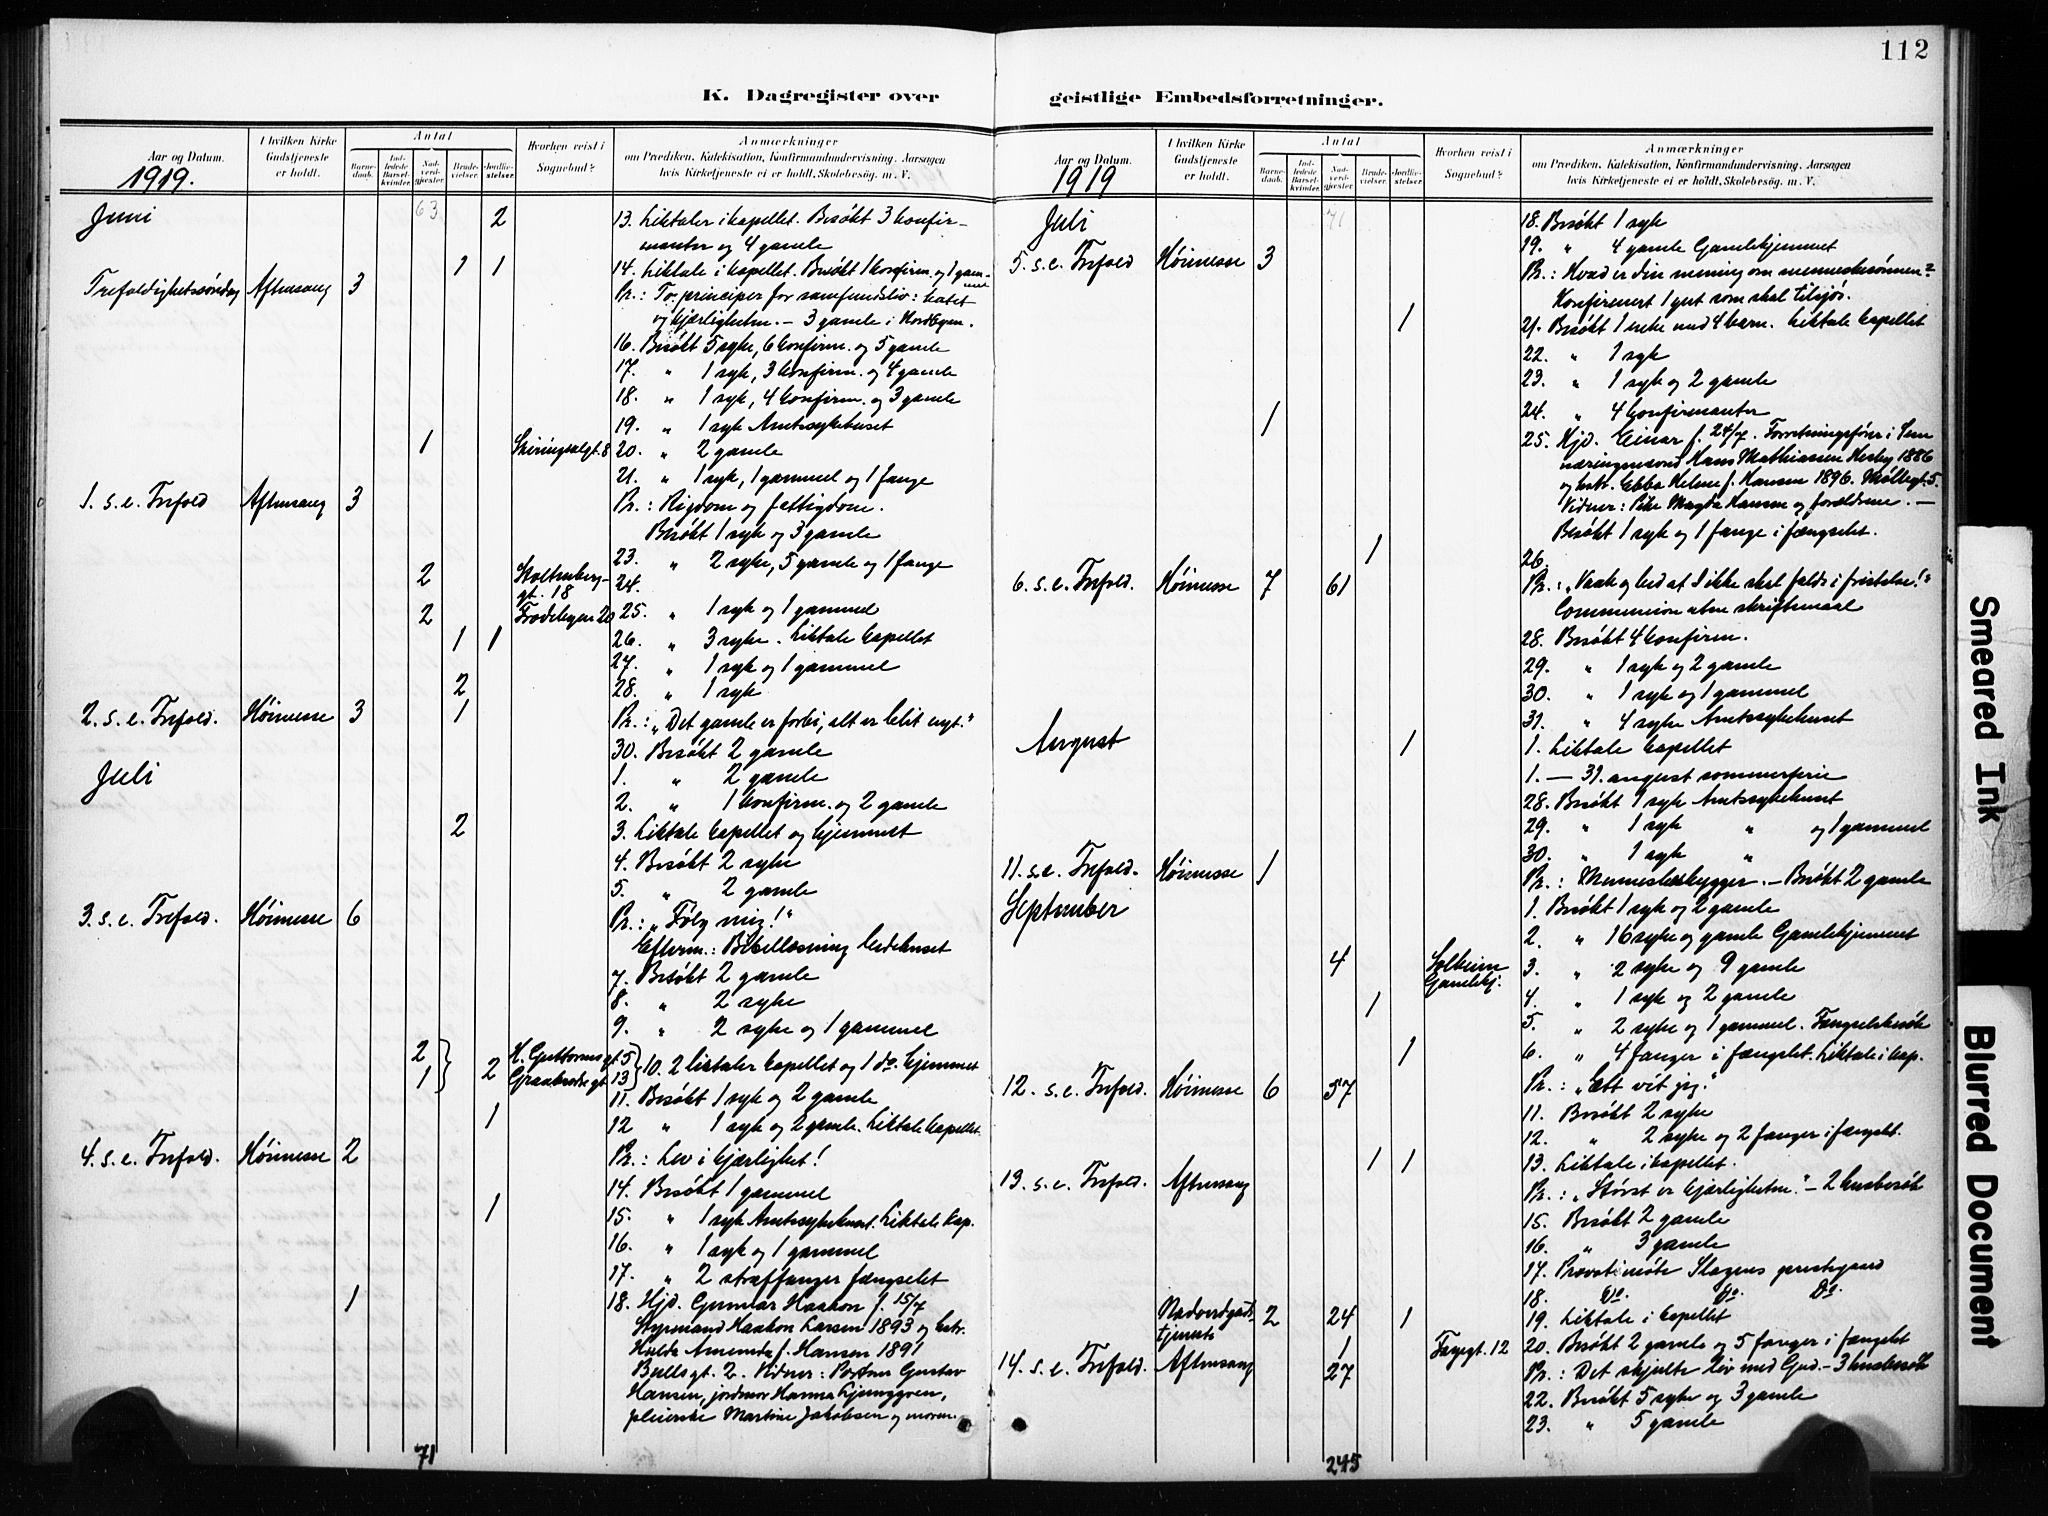 112
K. Dagregister over
Aar og Datum.
1919.
I hvilken Kirke Gudstjeneste er holdt.
Antal
Barnedaab.
Indledede Barselkvinder.
Nadverdgjester
Brudevielser.
Jordfæstelser.
Hvorhen reist i Sognebud?
Anmærkninger
om Prædiken, Katekisation, Konfirmandundervisning, Aarsagen
hvis Kirketjeneste ei er holdt, Skolebesøg. m. V.
Juni 63 2 13. Liktaler i kapellet. Besøkt 3 konfir-
manter og 4 gamle
1 1 14. Liktale i kapellet. Besøkt 1 konfirm. og 1 gammel
Trefoldighetssøndag Aftensang 3 Pr.: To principer for samfundsliv: hatet
og kjærligheten. — 3 gamle i Nordbyen.
16. Besøkt 5 syke, 6 konfirm. og 5 gamle
17. " 1 syk, 3 konfirm. og 4 gamle
18. " 1 syk, 4 konfirm. og 3 gamle
19. " 1 syk Amtssykehuset
1 Skiringsalgt. 8 20. " 2 gamle
21. " 1 syk, 1 gammel og 1 fange
1. s. e. Trefold Aftensang 3 Pr.: Rigdom og fattigdom.
Besøkt 1 syk og 3 gamle
23. " 2 syke, 5 gamle og 1 fange
2 Stoltenberg- 24.
gt. 18
2 Frodebyen 20 25. " 1 syk og 1 gammel
1 1 26. " 3 syke. Liktale kapellet
27. " 1 syk og 1 gammel
2 28. " 1 syk
2. s. e. Trefold. Høimesse 3 1 Pr.: „Det gamle er forbi, alt er blit nyt."
30. Besøkt 2 gamle
Juli 1. " 2 gamle
2. " 1 konfirm. og 2 gamle
2 3. Liktale kapellet og hjemmet
4. Besøkt 2 syke
5. " 2 gamle
3. s. e. Trefold. Høimesse 6 Pr.: „Følg mig!"
Efterm.: Bibellæsning bedehuset
7. Besøkt 2 gamle
8. " 2 syke
9. " 2 syke og 1 gammel
2 H. Guttormsgt. 5
1 2 Graabrødregt. 13 10. 2 liktaler kapellet og 1 do. hjemmet
11. Besøkt 1 syk og 2 gamle
1 12 " 1 syk og 2 gamle. Liktale kapellet.
4. s. e. Trefold. Høimesse 2 Pr.: Lev i kjærlighet!
14. Besøkt 1 gammel
1 15. " 1 syk Amtssykehuset. Liktale kap.
16. " 1 syk og 1 gammel
17. " 2 straffanger fængselet
1 18. Hjd. Gunnar Haakon f. 15/7
Styrmand Haakon Larsen 1893 og hstr.
Hulda Amanda f. Hansen 1891
Bullsgt. 2. Vidner: Portner Gustav
Hansen, jordmor Hanna Ljunggren,
pleierske Martine Jakobsen og moren.
71
geistlige Embedsforretninger.
Aar og Datum.
1919
I hvilken Kirke Gudstjeneste er holdt.
Antal
Barnedaab.
Indledede Barselkvinder.
Nadverdgjester
Brudevielser.
Jordfæstelser.
Hvorhen reist i Sognebud?
Anmærkninger
om Prædiken, Katekisation, Konfirmandundervisning, Aarsagen
hvis Kirketjeneste ei er holdt, Skolebesøg. m. V.
Juli 71 18. Besøkt 1 syk
19. " 4 gamle Gamlehjemmet
5. s. e. Trefold Høimesse 3 Pr.: Hvad er din mening om menneskesønnen?
Konfirmert 1 gut som skal tilsjøs.
1 21. Besøkt 1 enke med 4 barn. Liktale kapellet
22. " 1 syk
23. " 1 syk og 2 gamle
24. " 4 konfirmanter
1 25. Hjd. Einar f. 24/7. Forretningsfører i Sem
næringsnevnd Hans Mathiassen Hesby 1886
og hstr. Ebba Helene f. Hansen 1896. Møllegt. 5.
Vidner: Pike Magda Hansen og forældrene. —
Besøkt 1 syk og 1 fange i fængselet.
1 26.
6. s. e. Trefold. Høimesse 7 61 Pr.: „Vaak og bed at I ikke skal falde i fristelse!"
Communion uten skriftemaal
28. Besøkt 4 konfirm.
29. " 1 syk og 2 gamle
30. " 1 syk og 1 gammel
31. " 4 syke Amtssykehuset
August 1 1. Liktale kapellet
1. — 31. august sommerferie
28. Besøkt 1 syk Amtssykehuset
29. " 1 syk " og 1 gammel
30. " 1 syk "
11. s. e. Trefold. Høimesse 1 Pr.: Menneskeskygger. — Besøkt 2 gamle
September 1. Besøkt 1 syk og 2 gamle
2. " 16 syke og gamle Gamlehjemmet
4 Solheim 3. " 2 syke og 9 gamle
Gamlehj.
1 4. " 1 syk og 2 gamle
5. " 2 syke og 1 gammel. Fængselsbesøk
1 6. " 4 fanger i fængslet. Liktale i kap.
12. s. e. Trefold. Høimesse 6 57 Pr.: „Ett vet jeg."
11. Besøkt 2 syke
12. " 2 syke og 2 fanger i fængslet.
1 1 13. Liktale i kapellet.
13. s. e. Trefold. Aftensang Pr.: „Størst er kjærligheten." — 2 husbesøk
15. Besøkt 2 gamle
16. " 3 gamle
17. Provstimøte Slagens prestegaard
18. Do. Do. Do.
Nadverdguds-
tjeneste 2 24 1 19. Liktale i kapellet
1 Fayegt. 12 20. Besøkt 2 gamle og 5 fanger i fængslet
14. s. e. Trefold. Aftensang 27 Pr.: Det skjulte liv med Gud. — 3 husbesøk
22. Besøkt 5 syke og 3 gamle
23. " 5 gamle
245
Smeared Ink
Blurred Document